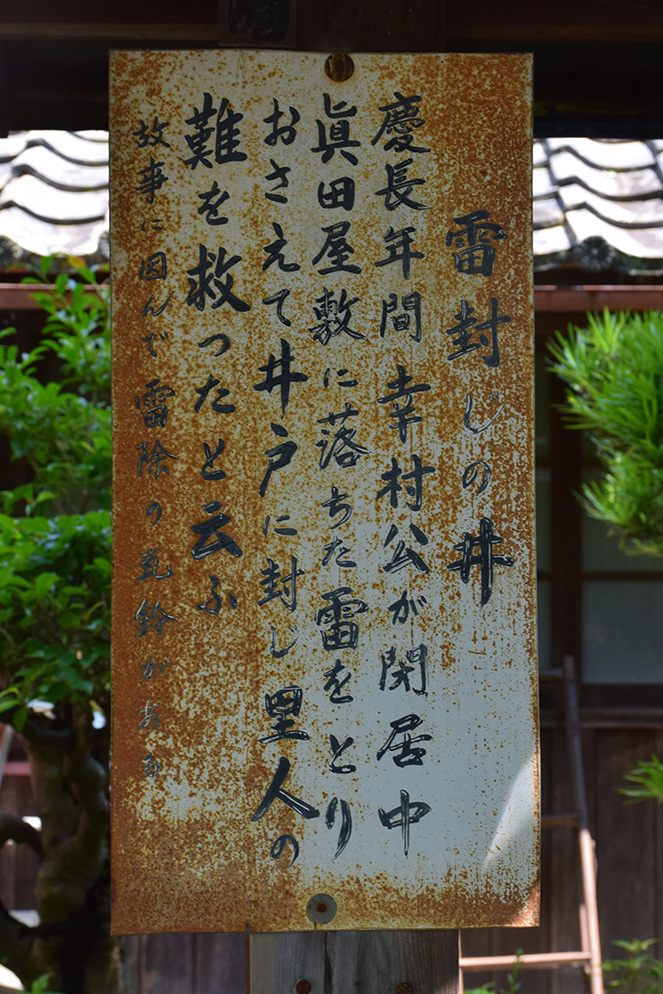 雷封じの井
慶長年間幸村公が閑居中
眞田屋敷に落ちた雷をとり
おさえて井戸に封し里人の
難を救ったと云ふ
故事に因んで雷除の瓦鈴がある